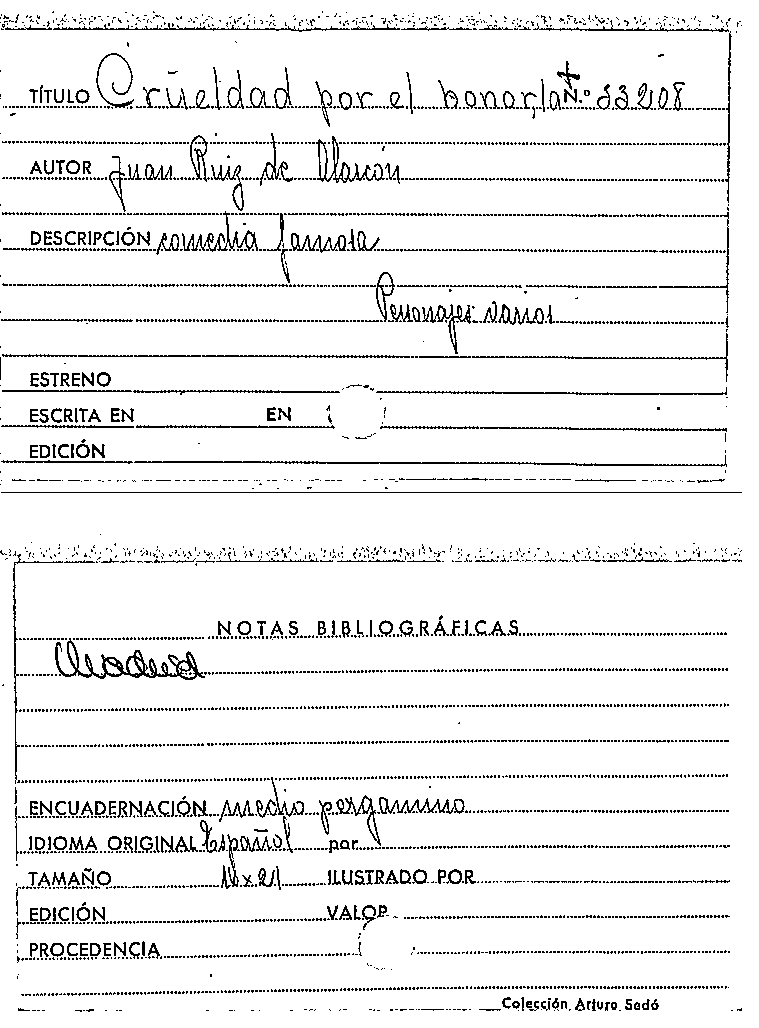 TÍTULO Crueldad por el honor, la N.º 33208
AUTOR Juan Ruiz de Alarcón
DESCRIPCIÓN comedia famosa
Personajes varios
ESTRENO
ESCRITA EN EN
EDICIÓN
NOTAS BIBLIOGRÁFICAS
ENCUADERNACIÓN medio pergamino
IDIOMA ORIGINAL Español por
TAMAÑO 16x21 ILUSTRADO POR
EDICIÓN VALOR
PROCEDENCIA
Colección Arturo Sedó